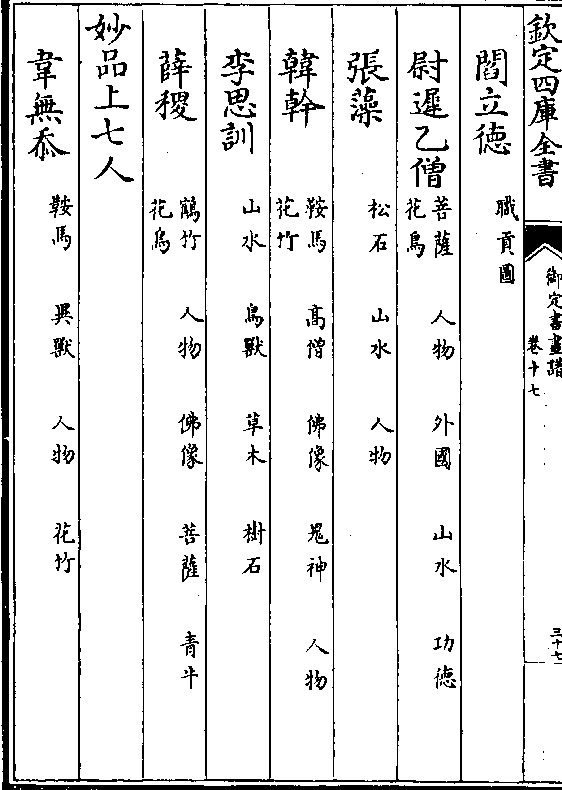 欽定四庫全書
御定書畫譜
卷十七
三十七
閻立德 職貢圖
尉遲乙僧 菩薩 人物 外國 山水 功德
花鳥
張藻 松石 山水 人物
韓幹 鞍馬 高僧 佛像 鬼神 人物
花竹
李思訓 山水 鳥獸 草木 樹石
薛稷 鶴竹 人物 佛像 菩薩 青牛
花鳥
妙品上七人
韋無忝 鞍馬 異獸 人物 花竹